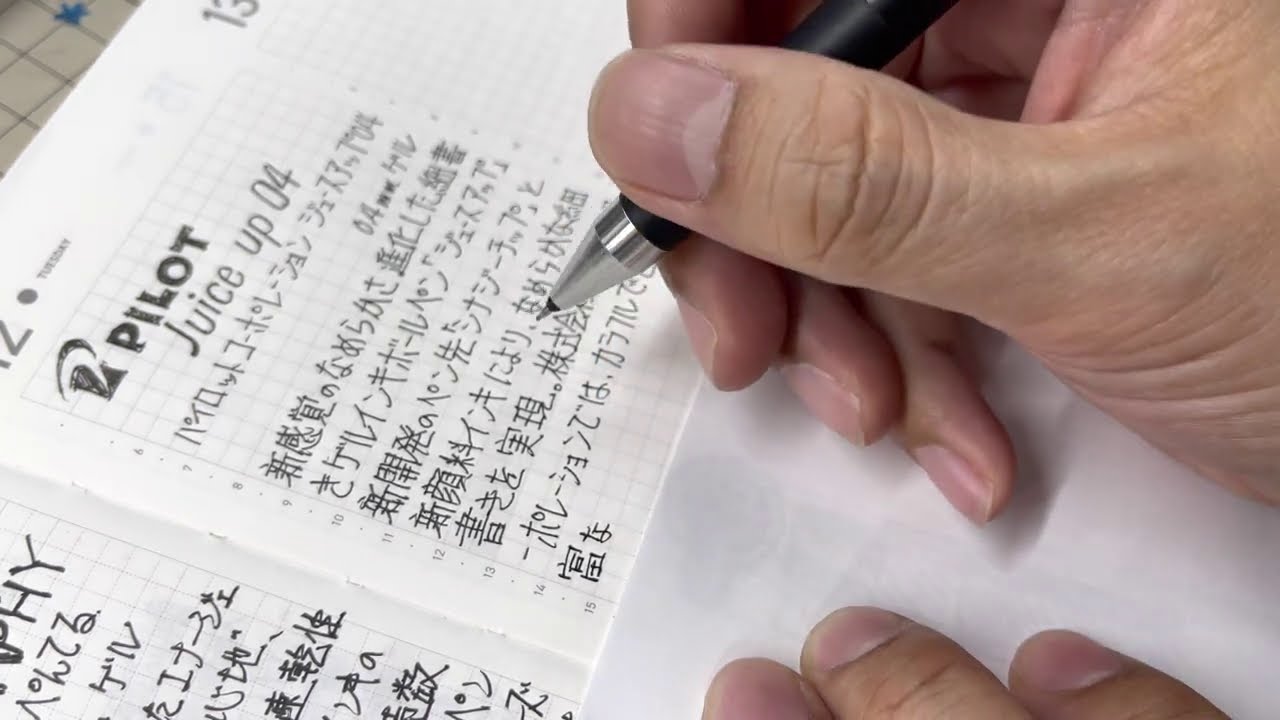 13
12
TUESDAY
PILOT
Juice up 04
パイロットコーポレーション ジュースアップ04
04mmゲル
新感覚のなめらかさ進化した細書
きゲルインキボールペン「ジュースアップ」
新開発のペン先たシナジーチップと
新顔料インキにより、なめらかな細
書きを実現。株式会社
ーポレーションでは、カラフルで
富な
6
7
8
9
10
11
12
13
14
15
PHY
ぺんてる
ゲル
たエナージェ
心地、
速乾性
ペン
ズ